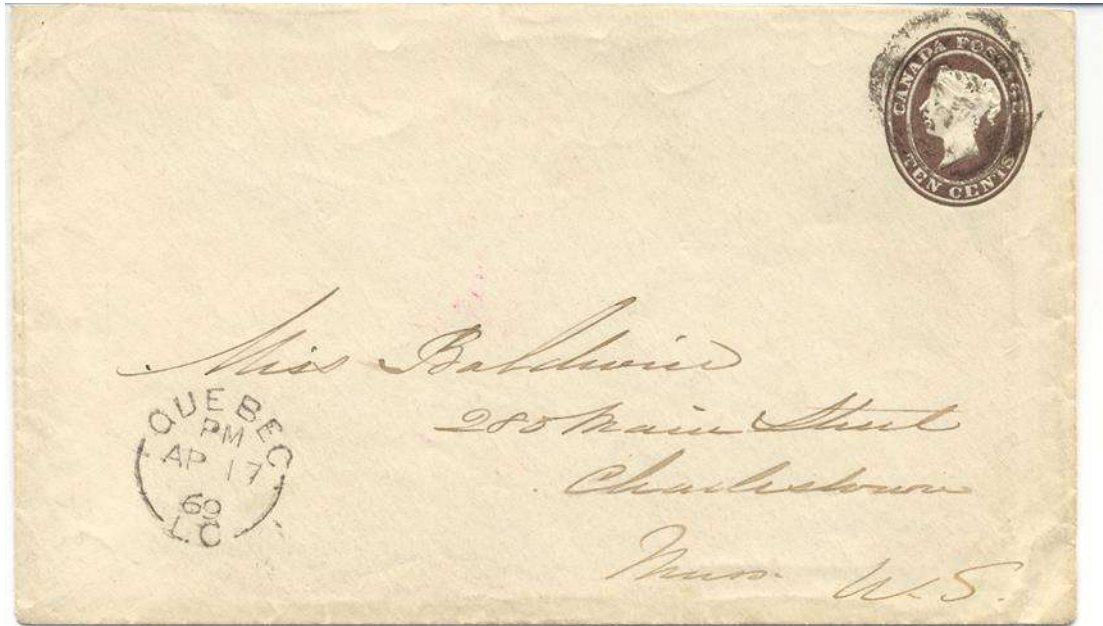 CANADA POSTAGE
TEN CENTS
Miss Baldwin
280 Main Street
Charlestown
Mass. U.S.
QUEBEC
PM
AP 17
60
L.C